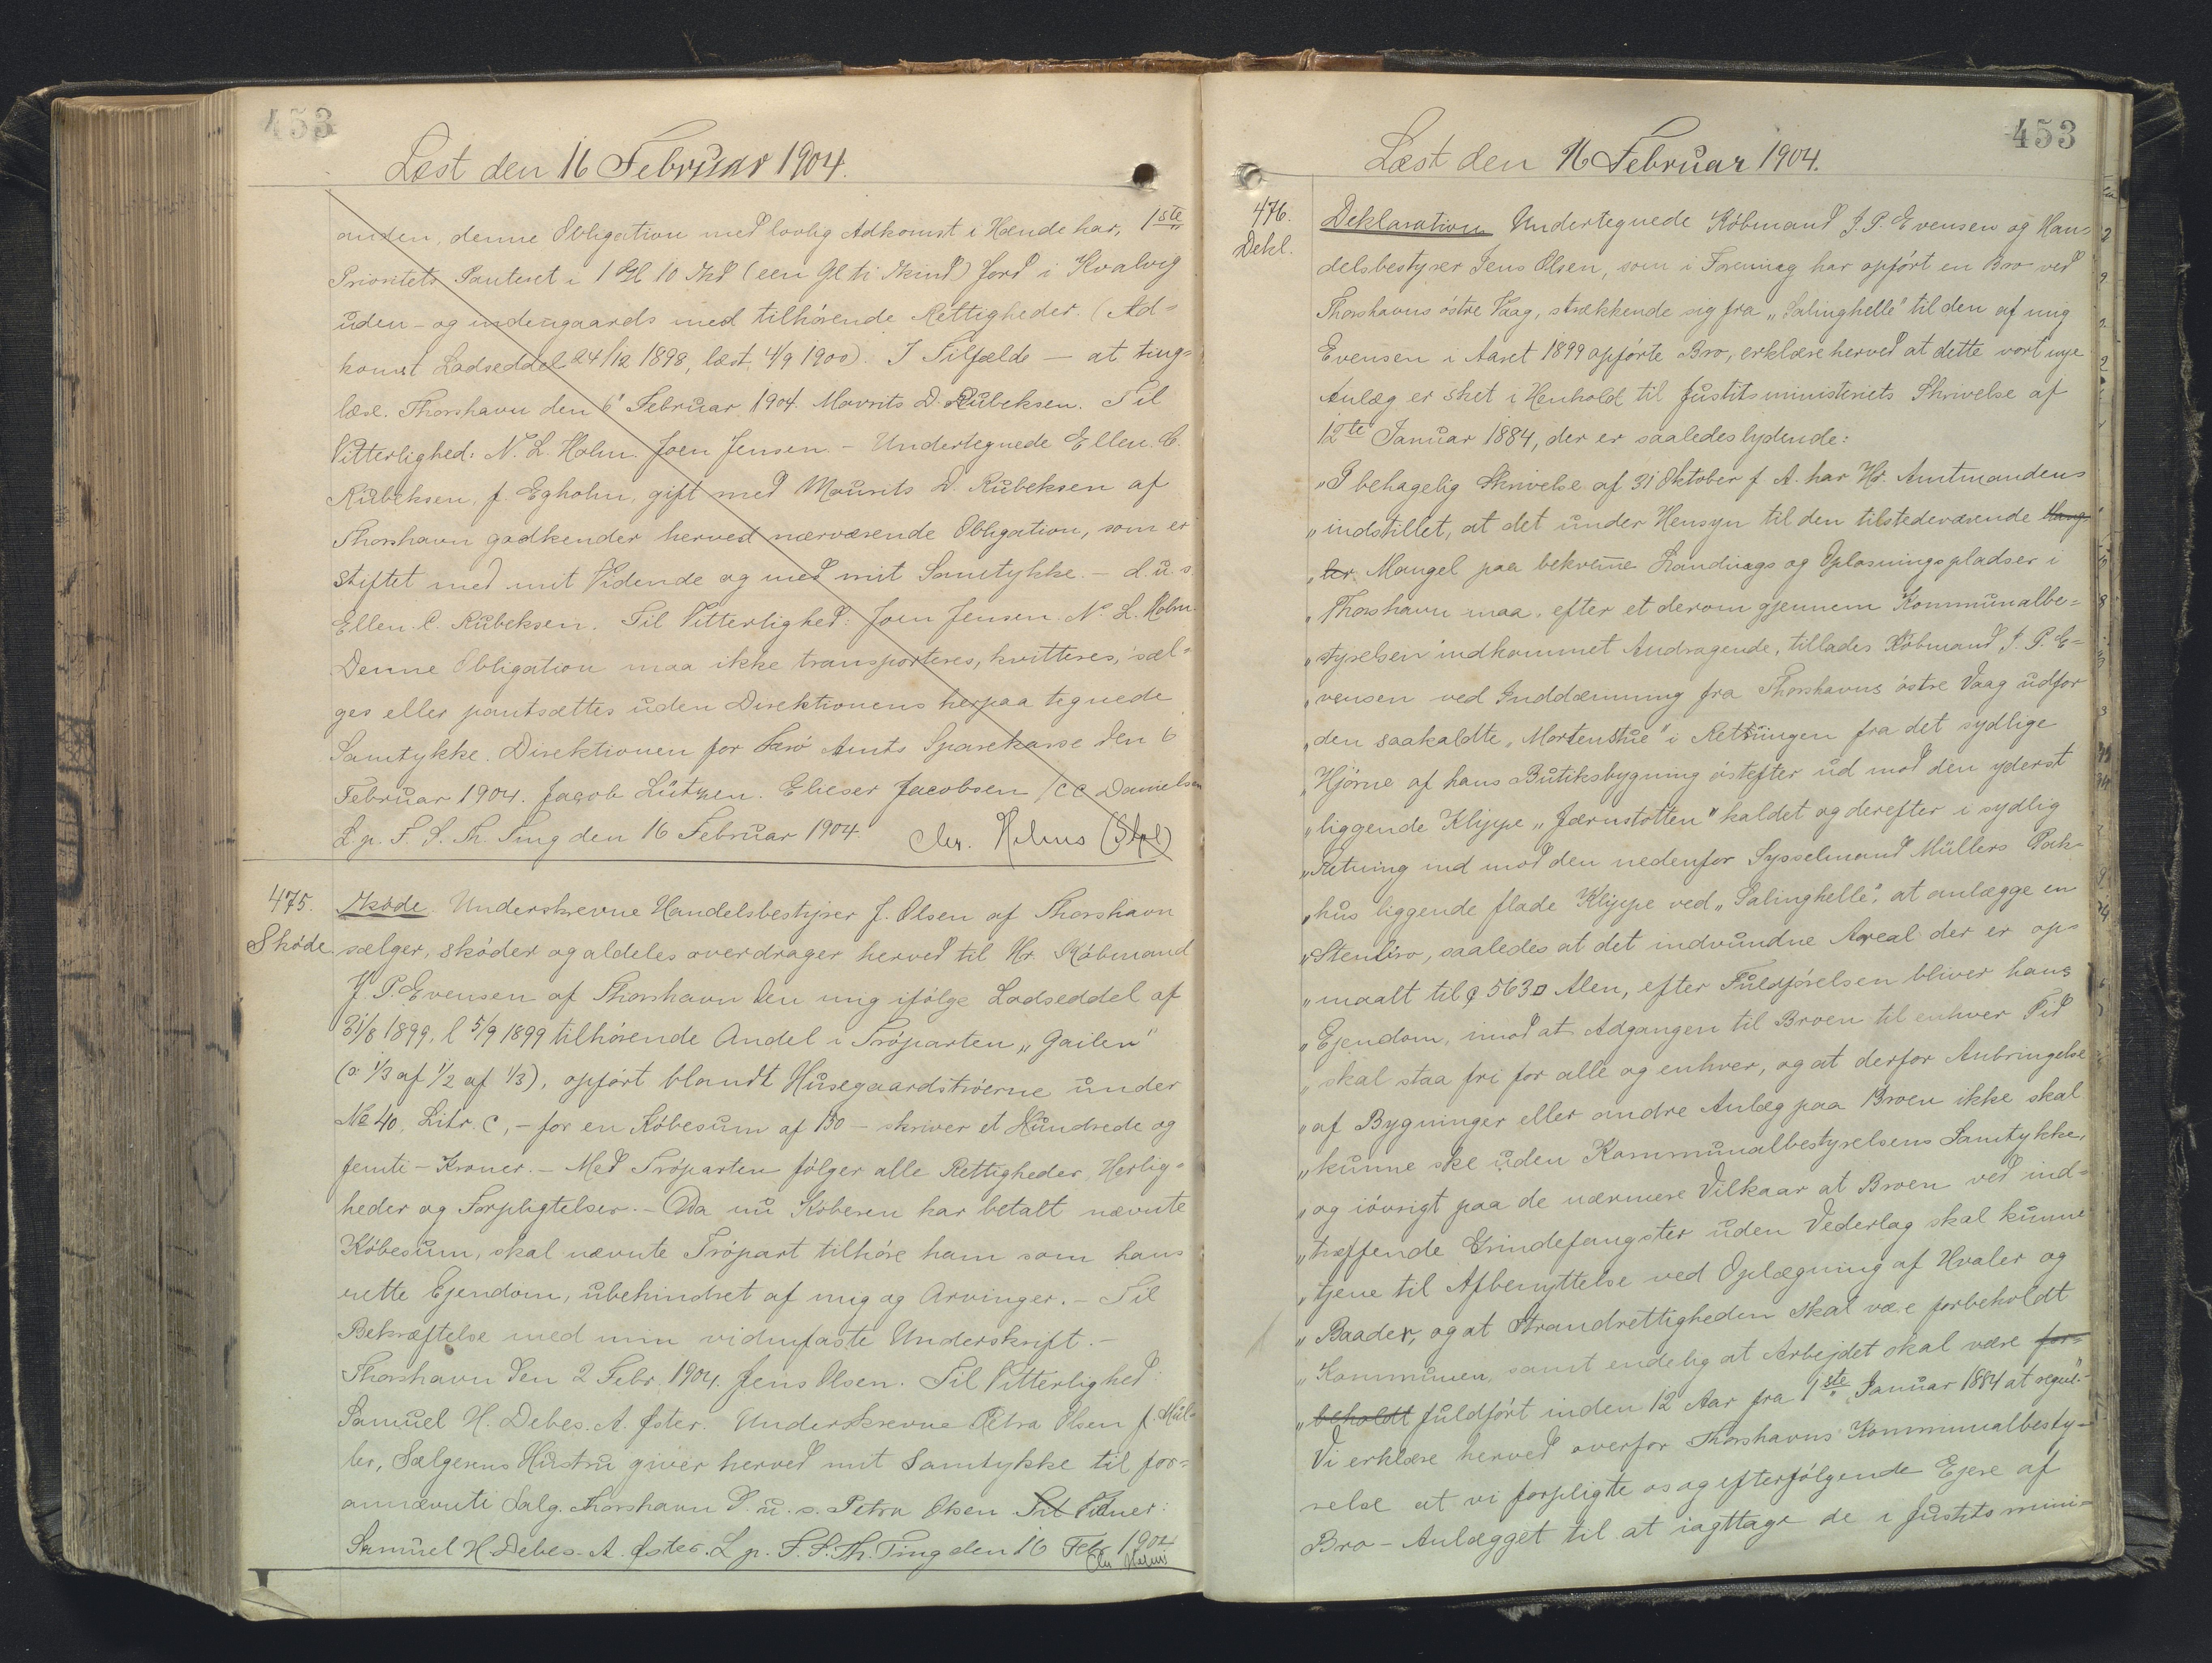 453
Læst den 16 Februar 1904.
anden, denne Obligation med lovlig Adkomst i Hænde har, 1ste
Prioritets Panteret i 1 Gl 10 Skd (een Gl ti Skind) Jord i Kvalvig
uden- og indengaards med tilhørende Rettigheder. (Ad-
komst Lodseddel 24/12 1898, læst 4/9 1900). I Tilfælde — at ting-
læse. Thorshavn den 6' Februar 1904. Mourits D. Rubeksen. Til
Vitterlighed: N. L. Holm. Joen Jensen. — Undertegnede Ellen C.
Rubeksen, f. Egholm, gift med Mourits D. Rubeksen af
Thorshavn godkender herved nærværende Obligation, som er
stiftet med mit Vidende og med mit Samtykke. — d. u. s.
Ellen C. Rubeksen. Til Vitterlighed: Joen Jensen. N. L. Holm.
Denne Obligation maa ikke transporteres, kvitteres, sæl-
ges eller pantsættes uden Direktionens herpaa tegnede
Samtykke. Direktionen for Færø Amts Sparekasse den 6
Februar 1904. Jacob Lützen. Elieser Jacobsen / C C Danielsen
L. p. F. S. Th. Ting den 16 Februar 1904. Chr. Holms (Stpl)
475.
Skøde.
Skøde. Underskrevne Handelsbestyrer J. Olsen af Thorshavn
sælger, skøder og aldeles overdrager herved til Hr. Købmand
J. P. Evensen af Thorshavn den mig ifølge Lodseddel af
31/8 1899, l 5/9 1899 tilhørende Andel i Trøparten „Gailen"
(o: 1/3 af 1/2 af 1/3), opført blandt Husegaardstrøerne under
No 40, Litr. C, — for en Købesum af 150 — skriver et Hundrede og
femti — Kroner. — Med Trøparten følger alle Rettigheder, Herlig-
heder og Forpligtelser. — Da nu Køberen har betalt nævnte
Købesum, skal nævnte Trøpart tilhøre ham som hans
rette Ejendom, ubehindret af mig og Arvinger. — Til
Bekræftelse med min vidnefaste Underskrift. —
Thorshavn den 2 Febr. 1904. Jens Olsen. Til Vitterlighed:
Samuel H. Debes. A. Øster. Underskrevne Petra Olsen f. Mül-
ler, Sælgerens Hustru giver herved mit Samtykke til for-
annævnte Salg. Thorshavn D. u. s. Petra Olsen Til Vidner:
Samuel H. Debes. A. Øster. L. p. F. S. Th. Ting den 16 Febr 1904
Chr Holms
453
Læst den 16 Februar 1904.
476.
Dekl.
Deklaration Undertegnede Købmand J. P. Evensen og Han-
delsbestyrer Jens Olsen, som i Forening har opført en Bro ved
Thorshavns østre Vaag, strækkende sig fra „Salinghelle" til den af mig
Evensen i Aaret 1899 opførte Bro, erklære herved at dette vort nye
Anlæg er sket i Henhold til Justitsministeriets Skrivelse af
12te Januar 1884, der er saaledes lydende:
„I behagelig Skrivelse af 31 Oktober f. A. har Hr. Amtmandens
„indstillet, at det under Hensyn til den tilstedeværende Mang-
„ler Mangel paa bekvemme Landings og Oplosningspladser i
„Thorshavn maa, efter et derom gjennem Kommunalbe-
„styrelsen indkommet Andragende, tillades Købmand J. P. E-
„vensen ved Inddæmning fra Thorshavns østre Vaag udfor
„den saakaldte „Mortenstue" i Retningen fra det sydlige
„Hjørne af hans Butiksbygning østefter ud mod den yderst
„liggende Klippe „Jærnstøtten" kaldet og derefter i sydlig
„Retning ind mod den nedenfor Sysselmand Müllers Pak-
„hus liggende flade Klippe ved „Salinghelle", at anlægge en
„Stenbro, saaledes at det indvundne Areal der er op-
„maalt til 563 □ Alen, efter Fuldførelsen bliver hans
„Ejendom, imod at Adgangen til Broen til enhver Tid
„skal staa fri for alle og enhver, og at derfor Anbringelse
„af Bygninger eller andre Anlæg paa Broen ikke skal
„kunne ske uden Kommunalbestyrelsens Samtykke,
„og iøvrigt paa de nærmere Vilkaar at Broen ved ind-
„træffende Grindefangster uden Vederlag skal kunne
„tjene til Afbenyttelse ved Oplægning af Hvaler og
„Baader, og at Strandrettigheden skal være forbeholdt
„Kommunen, samt endelig at Arbejdet skal være for-
„beholdt fuldført inden 12 Aar fra 1ste Januar 1884 at regne."
Vi erklære herved overfor Thorshavns Kommunalbesty-
relse at vi forpligte os og efterfølgende Ejere af
Bro-Anlægget til at iagttage de i Justitsmini-